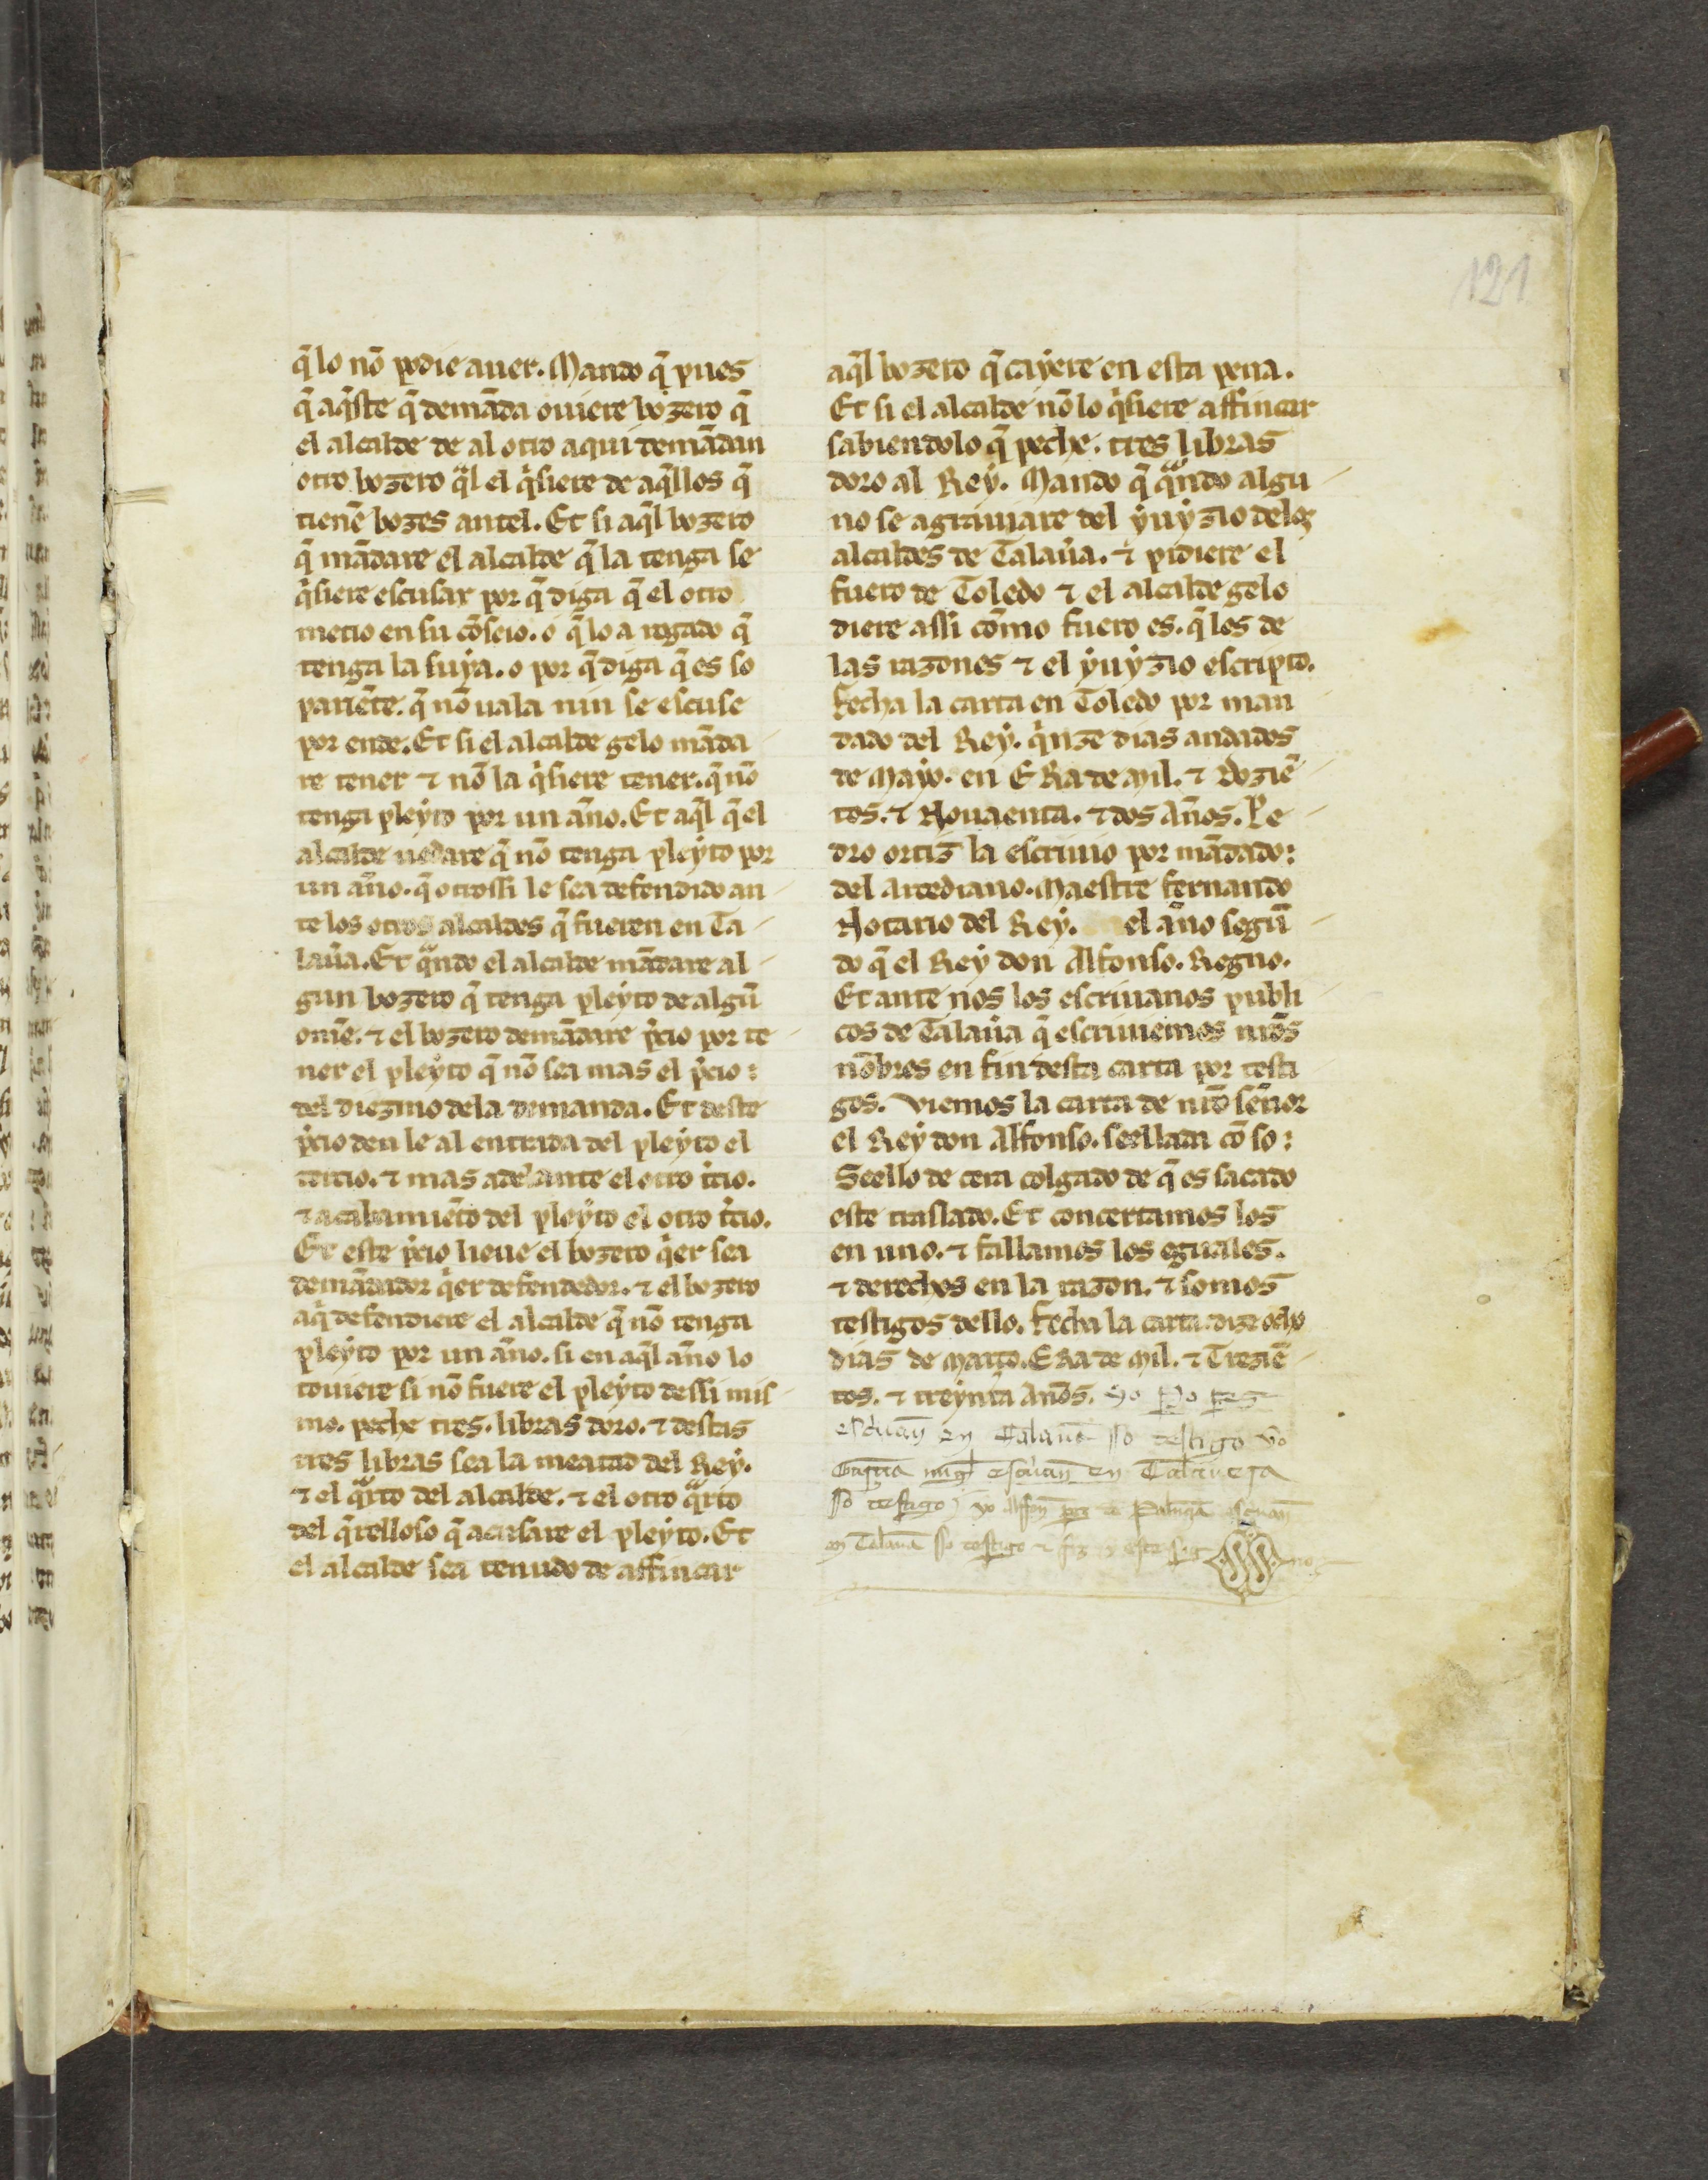 121
q̃ lo nõ podie auer. Mando q̃ pues
q̃ aq̃ste q̃ demãda ouiere bozero q̃
el alcalde de al otro aqui demãdan
otro bozero q̃l el q̃siere de aq̃llos q̃
tienẽ bozes antel. Et si aq̃l bozero
q̃ mãdare el alcalde q̃ la tenga se
q̃siere escusar por q̃ diga q̃ el otro
metio en su cõseio. o q̃ lo a rogado q̃
tenga la suya. o por q̃ diga q̃ es so
pariẽte. q̃ nõ uala nin se escuse
por ende. Et si el alcalde gelo mãda
re tener ⁊ nõ la q̃siere tener. q̃ nõ
tenga pleyto por un año. Et aq̃l q̃ el
alcalde uedare q̃ nõ tenga pleyto por
un año. q̃ otrossi le sea defendido an
te los otros alcaldes q̃ fueren en Ta
laũa. Et q̃ndo el alcalde mãdare al
gun bozero q̃ tenga pleyto de algũ
omẽ. ⁊ el bozero demãdare p̃cio por te
ner el pleyto q̃ nõ sea mas el p̃cio:
del diezmo dela demanda. Et deste
p̃cio den le al entrada del pleyto el
tercio. ⁊ mas adelante el otro t̃cio.
⁊ acabamiẽto del pleyto el otro t̃cio.
Et este p̃cio lieue el bozero q̃er sea
demãdador q̃er defendedor. ⁊ el bozero
aq̃ defendiere el alcalde q̃ nõ tenga
pleyto por un año. si en aq̃l año lo
touiere si nõ fuere el pleyto dessi mis
mo. peche tres. libras doro. ⁊ destas
tres libras sea la meatad del Rey.
⁊ el q̃rto del alcalde. ⁊ el otro q̃rto
del q̃relloso q̃ acusare el pleyto. Et
el alcalde sea tenudo de affincar
aq̃l bozero q̃ cayere en esta pena.
Et si el alcalde nõ lo q̃siere affincar
sabiendolo q̃ peche. tres libras
doro al Rey. Mando q̃ q̃ndo algu
no se agrauiare del yuyzio delos
alcaldes de Talaũa. ⁊ pidiere el
fuero de Toledo ⁊ el alcalde gelo
diere assi cõmo fuero es. q̃ les de
las razones ⁊ el yuyzio escripto.
Fecha la carta en Toledo por man
dado del Rey. q̃nze dias andados
de Mayo. en ERa de Mil. ⁊ doziẽ
tos. ⁊ Nouaenta. ⁊ dos Años. Pe
dro ortiz la escriuio por mãdado:
del arcediano. Maestre fernando
Notario del Rey. el año segũ
do q̃ el Rey don Alfonso. Regno.
Et ante nos los escriuanos publi
cos de Talaũa q̃ escriuiemos nr̃os
nõbres en fin desta carta por testi
gos. viemos la carta de nr̃o señor
el Rey don Alfonso. seellada cõ so:
Seello de cera colgado de q̃ es sacado
este traslado. Et concertamos los
en uno. ⁊ fallamos los eguales.
⁊ derechos en la razon. ⁊ somos
testigos dello. Fecha la carta. dize ocho
dias de Março. ERa de Mil. ⁊ Treziẽ
tos. ⁊ treynta Años. yo Po
escuañ en Talaũa so testigo yo
Garcia escriuañ en Talauera
so testigo yo Alfoñ escriuañ
en Talauã so testigo ⁊ fiz este sig no